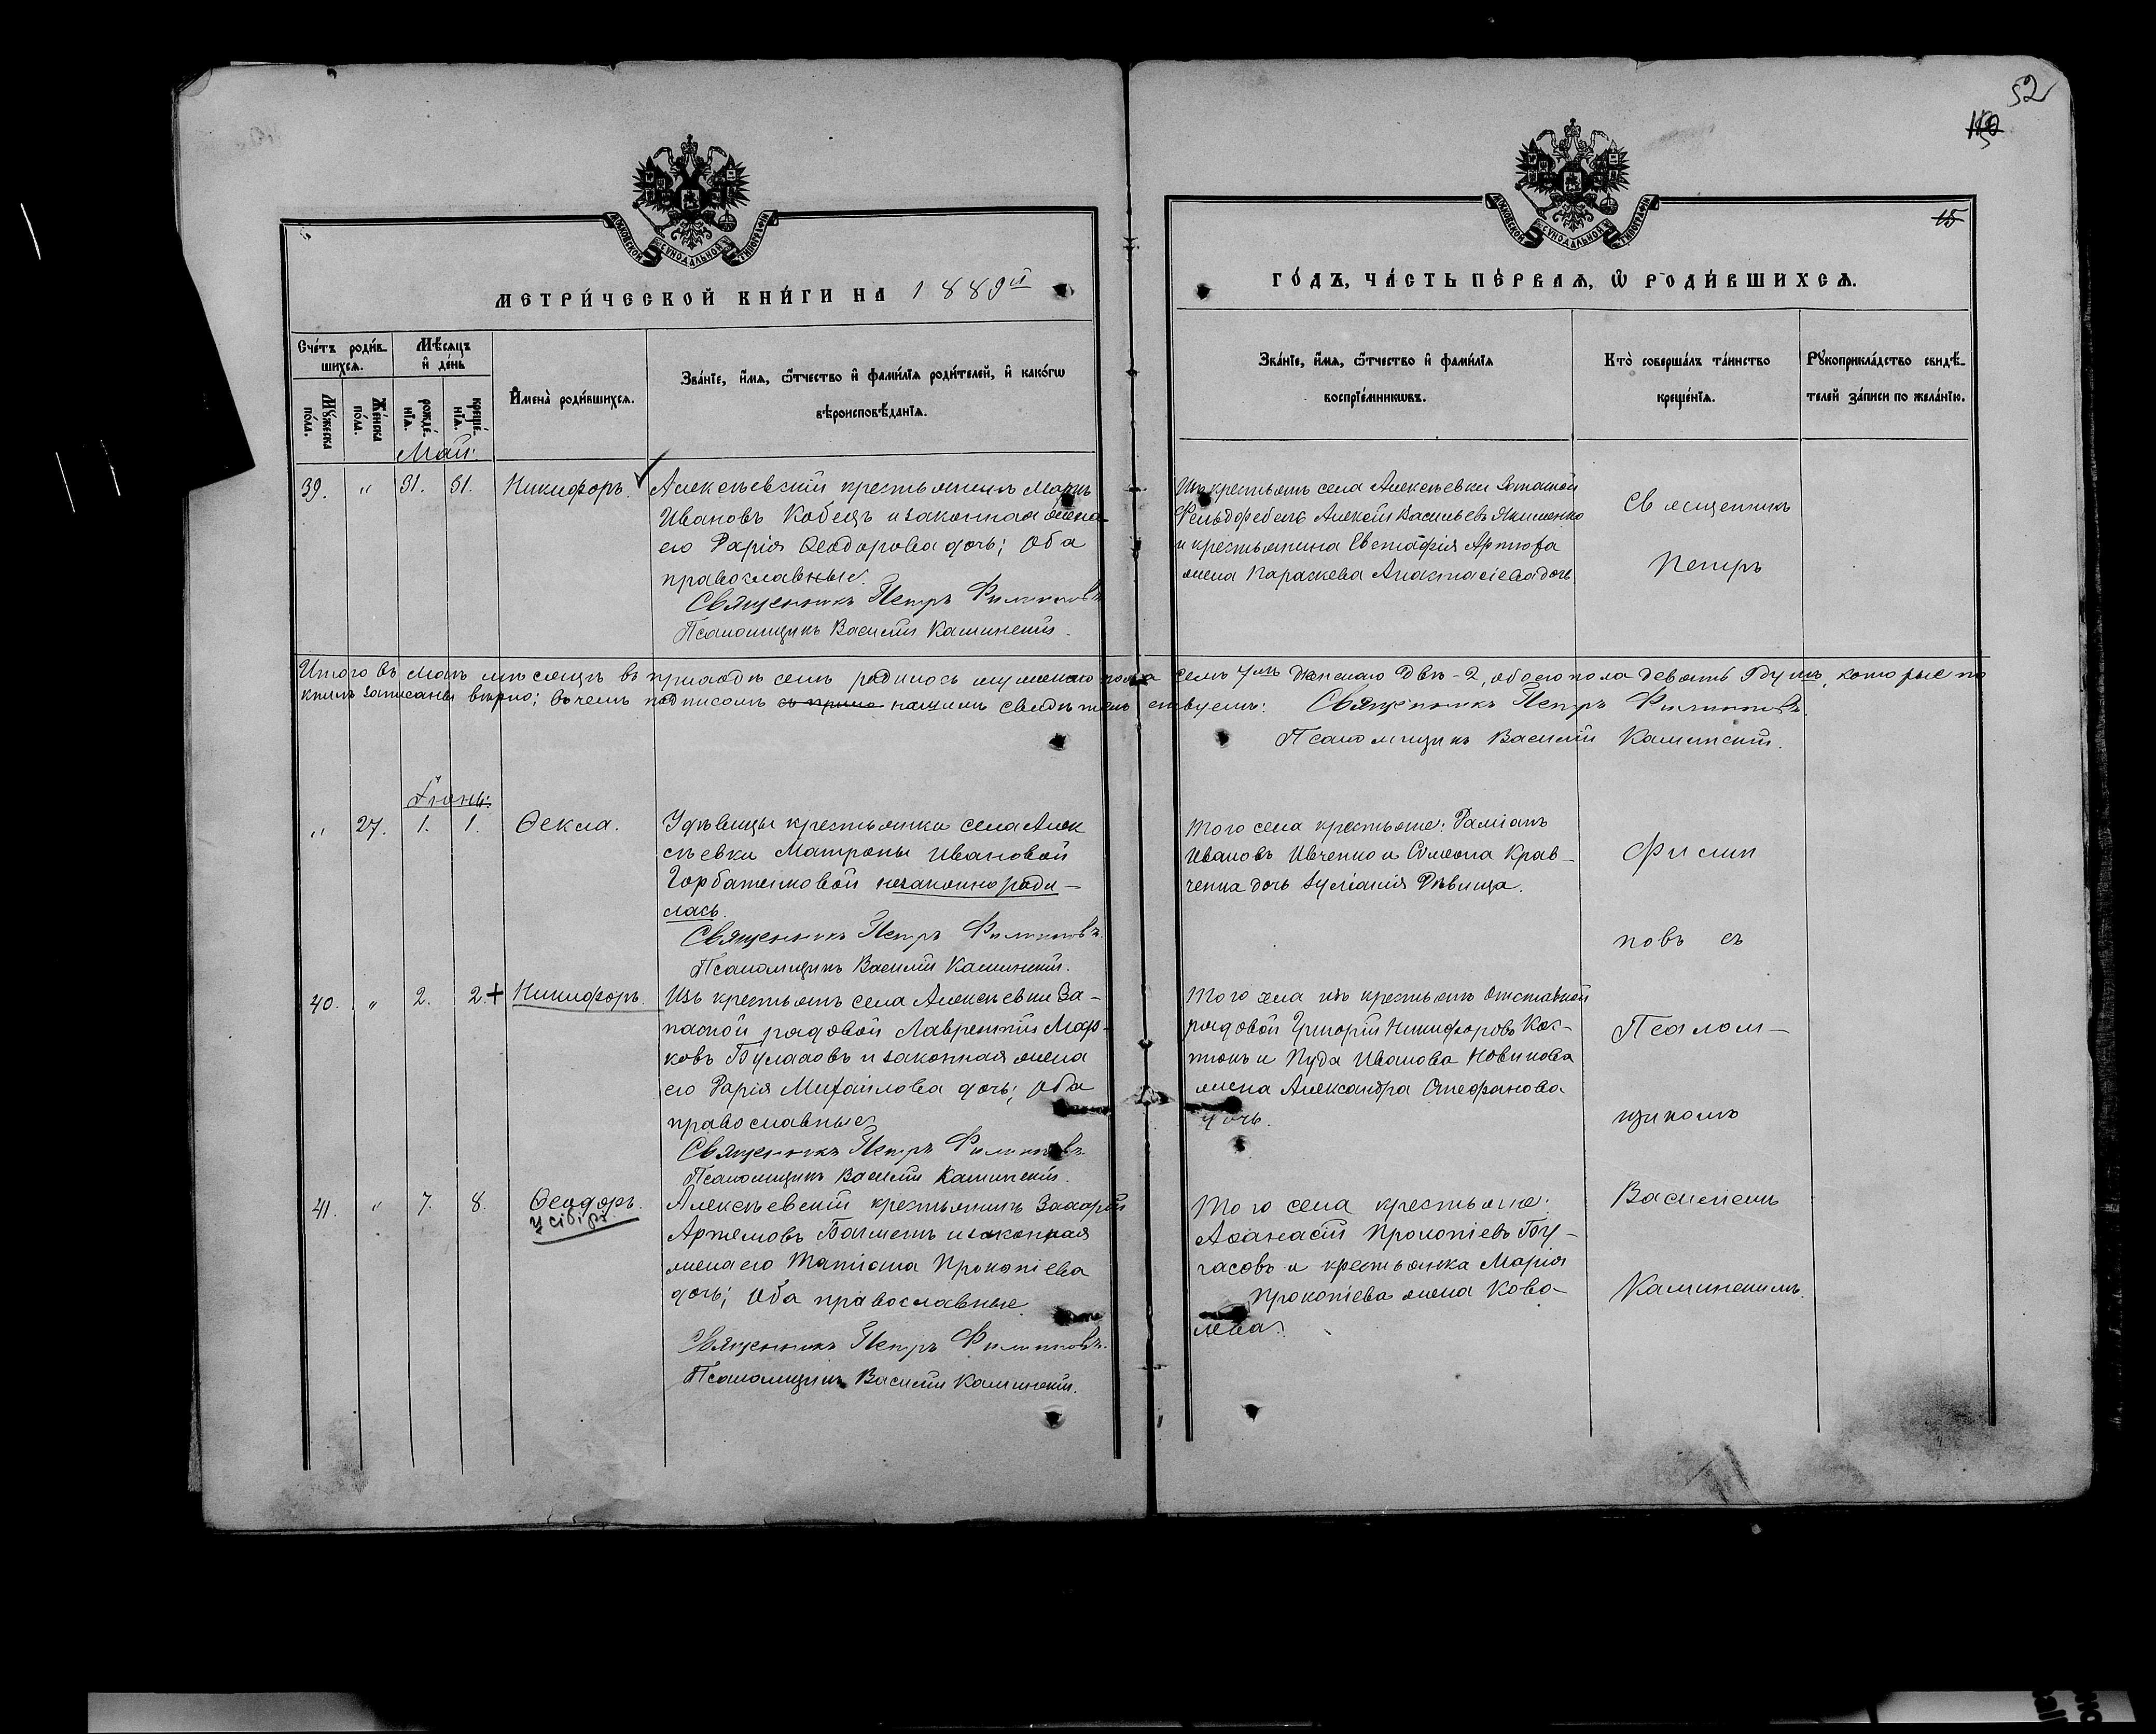 52
15
МОСКОВСКОЙ СѴНОДАЛЬНОЙ ТИПОГРАФІИ
МОСКОВСКОЙ СѴНОДАЛЬНОЙ ТИПОГРАФІИ
МЕТРИ́ЧЕСКОЙ КНИ́ГИ НА 1889й
ГО́ДЪ, ЧА́СТЬ ПЕ́РВАѦ, Ѽ РОДИ́ВШИХСѦ.
Сче́тъ роди́вшихсѧ.
Мѣ́сѧцъ и҆ де́нь
Мꙋ́жеска по́ла.
Же́нска по́ла.
рожде́нїѧ.
креще́нїѧ.
И҆мена̀ роди́вшихсѧ.
Зва́нїе, и҆́мѧ, ѻ҆́тчество и҆ фами́лїѧ роди́телей, и҆ како́гѡ
вѣроисповѣ́данїѧ.
Зва́нїе, и҆́мѧ, ѻ҆́тчество и҆ фами́лїѧ
воспрїе́мникѡвъ.
Кто̀ соверша́лъ та́инство
креще́нїѧ.
Рꙋкоприкла́дство свидѣ́-
телей за́писи по жела́нїю.
Май:
39. " 31. 31. Никифоръ.
Алексѣевскій крестьянинъ Маркъ
Ивановъ Кобецъ и законная жена
его Дарія Ѳеодорова дочь; Оба
православные.
Священникъ Петръ Филиповъ
Псаломщикъ Василій Каминскій.
Изъ крестьянъ села Алексѣевки
Фельдфебель Алексѣй Васильевъ Якименко
и крестьянина Евстафія
жена Параскева Анастасіева дочь
Священникъ
Петръ
Итого въ маѣ мѣсяцѣ въ приходѣ семъ родилось мужескаго пола семь 7мь Женскаго Двѣ-2, обоего пола девять 9 душъ, которые по
книгѣ записаны вѣрно; въ чемъ подписомъ нашимъ свидѣтельствуемъ: Священникъ Петръ Филиповъ.
Псаломщикъ Василій Каминскій.
Іюнь:
" 27. 1. 1. Ѳекла.
Удѣвицы крестьянки села Алек
сѣевки Матроны Ивановой
Горбатенковой незаконно роди-
лась.
Священникъ Петръ Филиповъ.
Псаломщикъ Василій Каминскій.
Того села крестьяне: Даміанъ
Ивановъ Ивченко и Симеона Крав-
ченка дочь Дѣвица.
Филип
повъ съ
40. " 2. 2.+ Никифоръ.
Изъ крестьянъ села Алексѣевки За-
пасной рядовой Лаврентій Мар-
ковъ Булахъ и законная жена
его Дарія Михайлова дочь; Оба
православные
Священникъ Петръ Филиповъ.
Псаломщикъ Василій Каминскій.
Того села изъ крестьянъ Отставной
рядовой Григорій Никифоровъ Кос-
тюкъ и Іуда Иванова Новикова
жена Александра Стефанова
дочь.
Псалом-
щикомъ
41. " 7. 8. Ѳеодоръ.
Алексѣевскій крестьянинъ Захарій
Артемовъ Бахметъ и законная
жена его Татіана Прокопіева
дочь; Оба православные.
Священникъ Петръ Филиповъ.
Псаломщикъ Василій Каминскій.
Того села крестьяне:
Аѳанасій Прокопіевъ Бу-
гасовъ и крестьянка Марія
Прокопіева жена Кова-
лева.
Василіемъ
Каминскимъ.